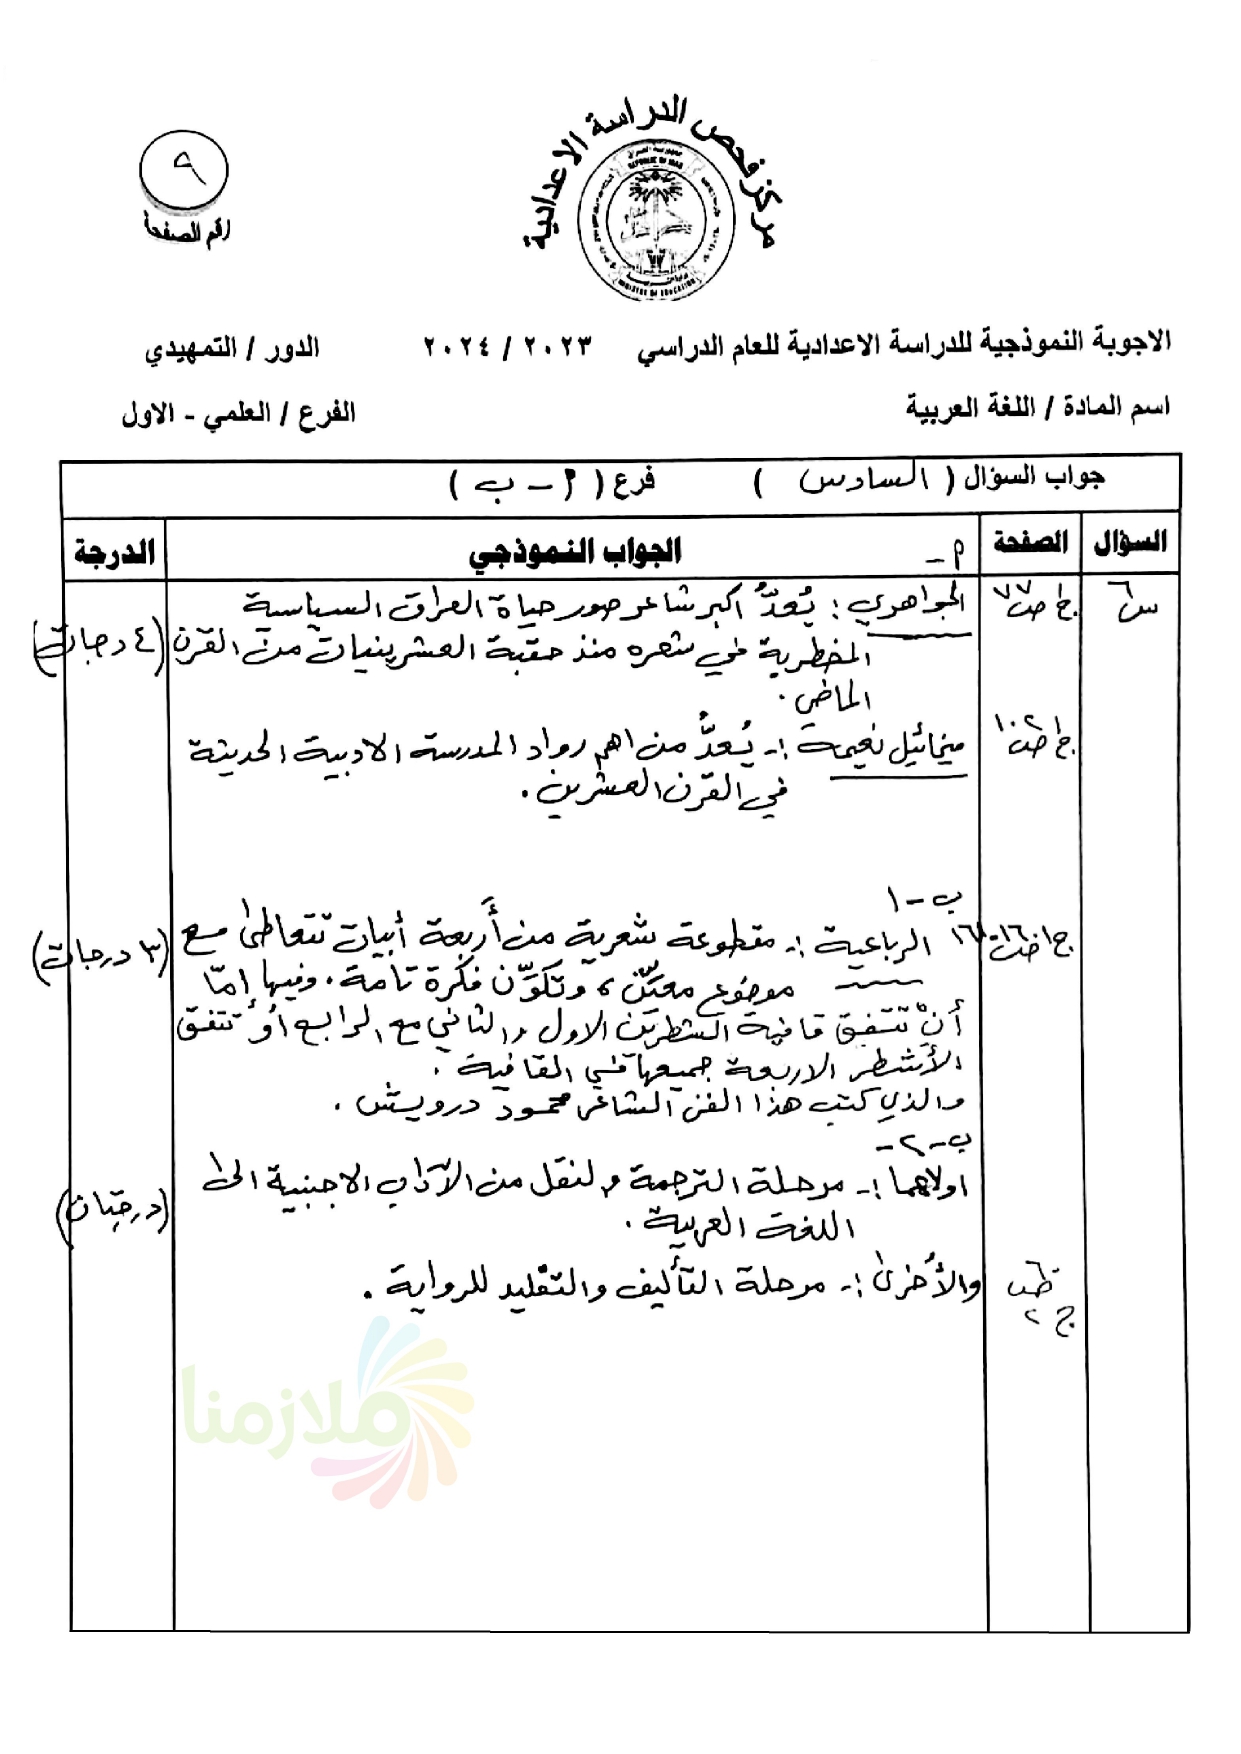 مركز فحص الدراسة الاعدادية
٩
رقم الصفحة
REPUBLIC OF IRAQ
MINISTRY OF EDUCATION
الاجوبة النموذجية للدراسة الاعدادية للعام الدراسي ٢٠٢٣ / ٢٠٢٤ الدور / التمهيدي
اسم المادة / اللغة العربية الفرع / العلمي - الاول
جواب السؤال ( السادس ) فرع ( أ - ب )
السؤال الصفحة أ - الجواب النموذجي الدرجة
س٦ ج١ ص٧٧ الجواهري : يُعدُّ اكبر شاعر صور حياة العراق السياسية
المضطربة في شعره منذ حقبة العشرينيات من القرن (٤ درجات)
الماضي .
ج١ ص١٠٢ ميخائيل نعيمة :- يُعدُّ من اهم رواد المدرسة الادبية الحديثة
في القرن العشرين .
ب - ١
ج١ ص١٦ الرباعية :- مقطوعة شعرية من أربعة أبيات تتعاطى مع (٣ درجات)
موضوع معيّن ، وتكوّن فكرة تامة . وفيها امّا
أنْ تتفق قافية الشطرين الاول والثاني مع الرابع أو تتفق
الأشطر الاربعة جميعها في القافية .
والذي كتب هذا الفن الشاعر محمود درويش .
ب - ٢ -
اولاهما :- مرحلة الترجمة والنقل من الآداب الاجنبية الى (درجتان)
اللغة العربية .
والأخرى :- مرحلة التأليف والتقليد للرواية .
ج٢
ملازمنا